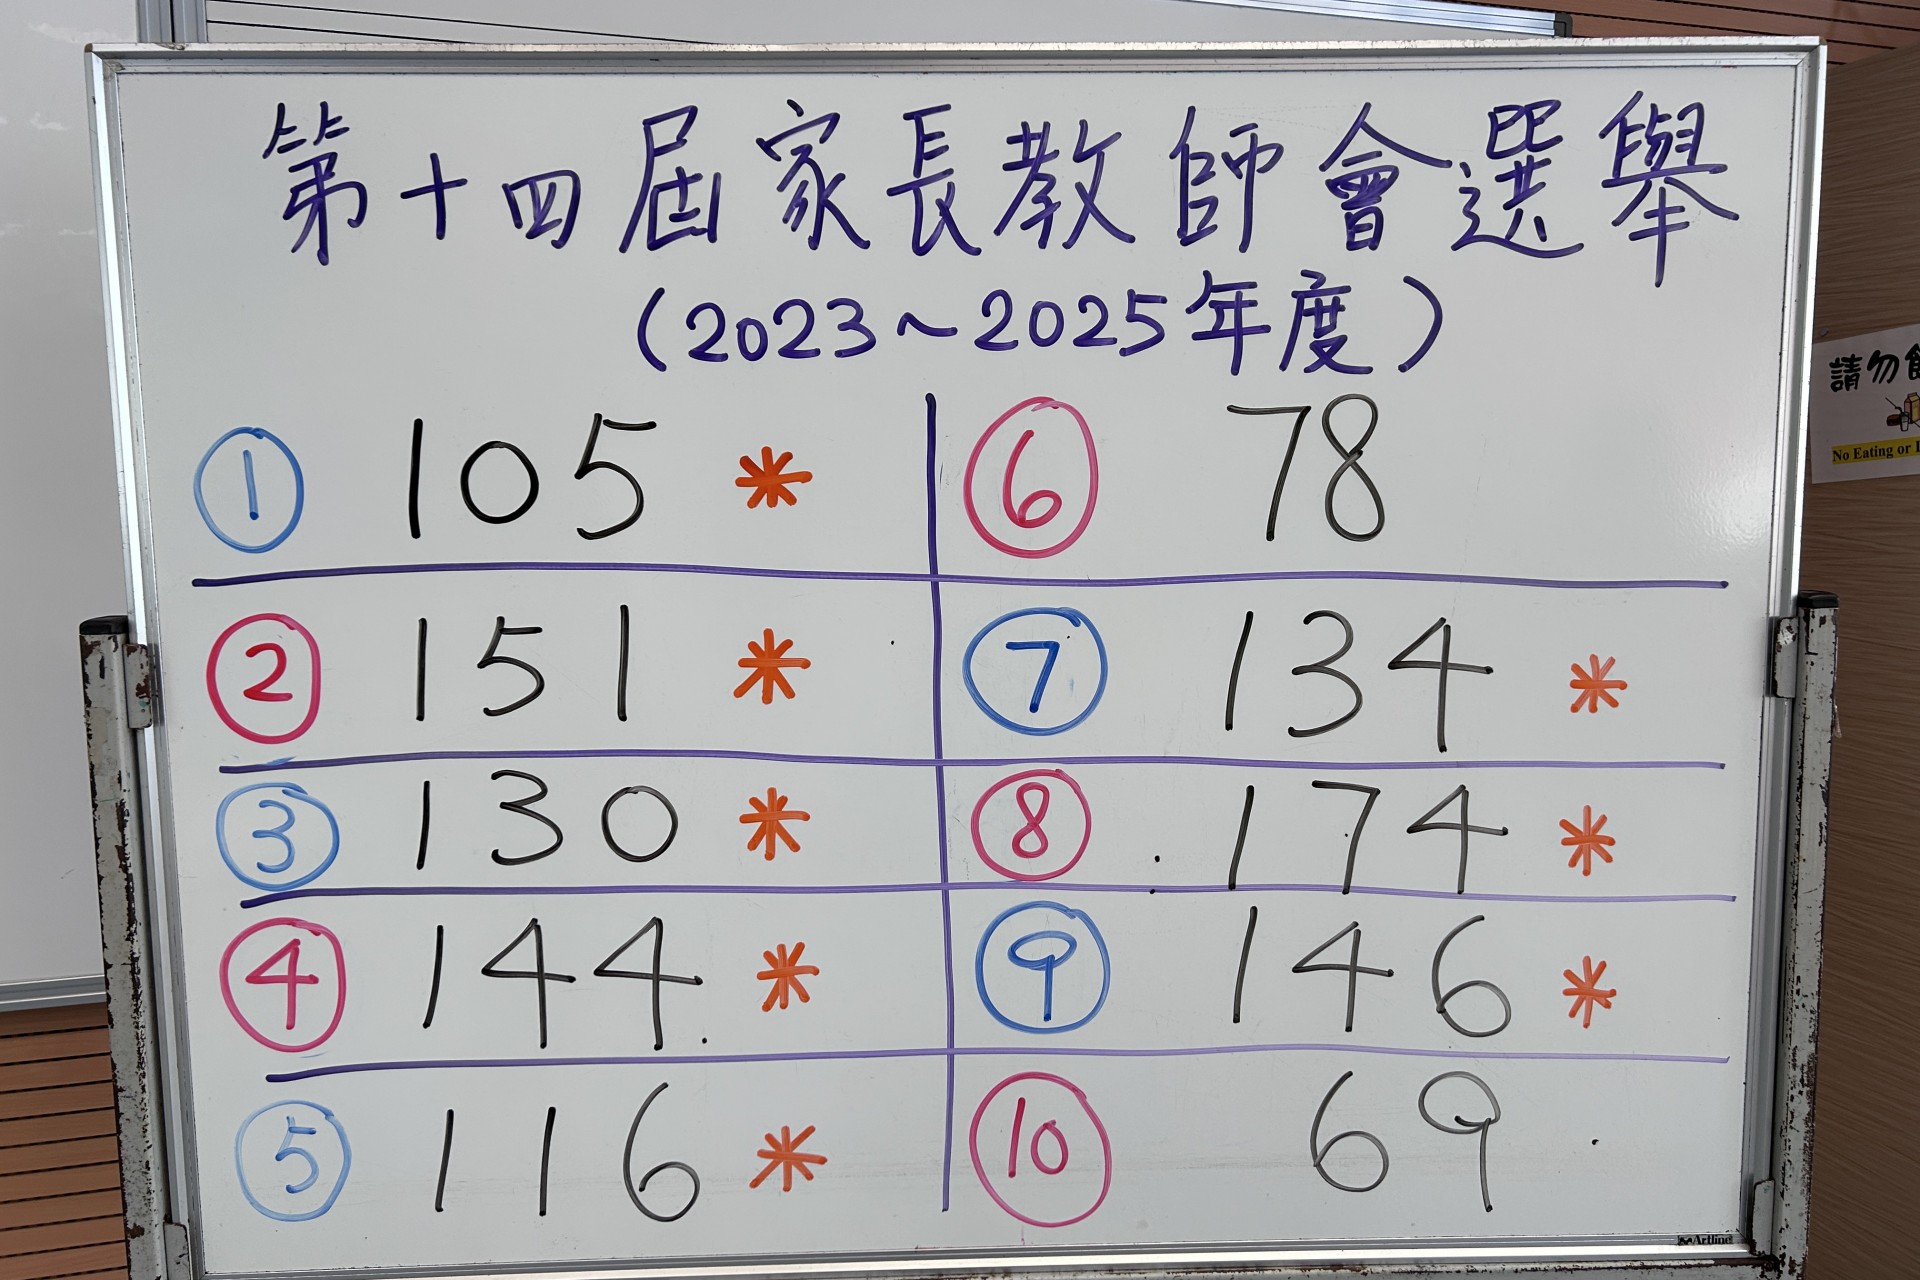 第十四屆家長教師會選舉
(2023~2025年度)
① 105 * ⑥ 78
② 151 * ⑦ 134 *
③ 130 * ⑧ 174 *
④ 144 * ⑨ 146 *
⑤ 116 * ⑩ 69
請勿
No Eating or
Artline